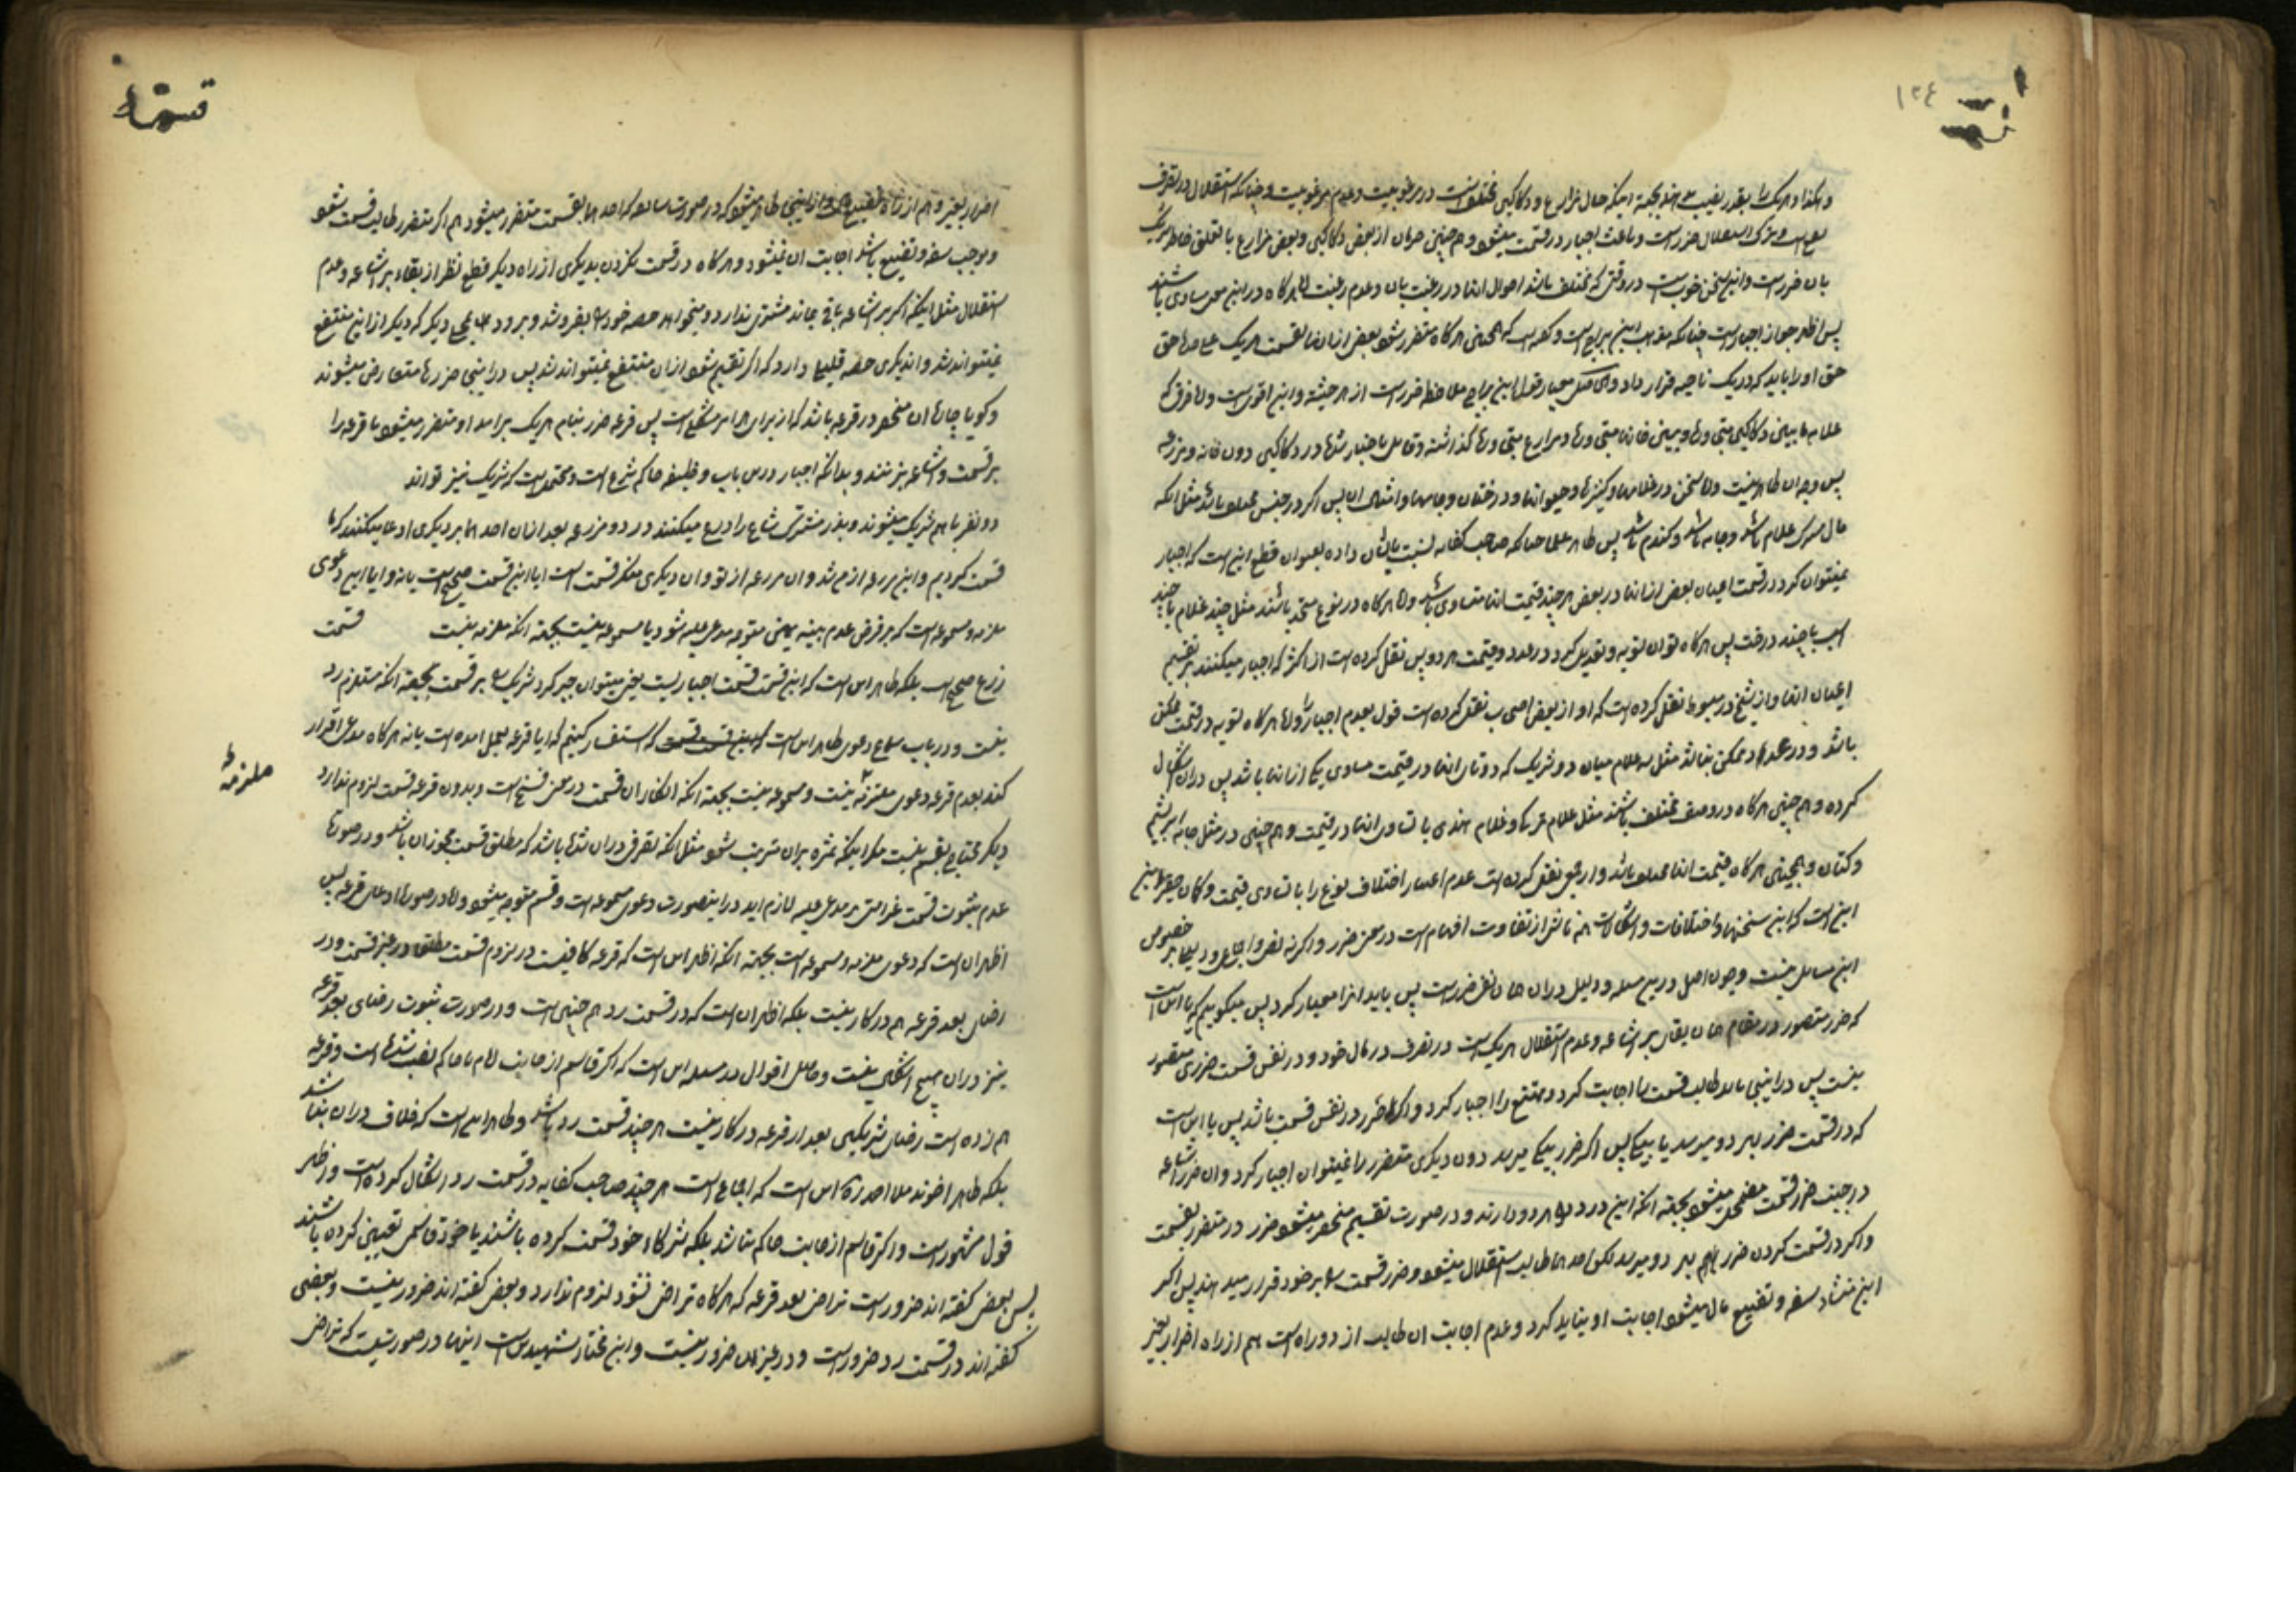 ۱۲۴
و هکذا و هریک را بقدر نصیب میدهند بجهة اینکه حال مزارع و دکاکین مختلفست در مرغوبیت و عدم مرغوبیت و چنانکه استقلال در تصرف
است و ترک استقلال ضرر است و باعث اجبار در قسمت میشود و هم چنین حرمان از بعض دکاکین و بعض مزارع با تعلق خاطر هریک
بان ضرر است و این سخن خوب است در وقتی که مختلف باشد احوال انها در رغبت بان و عدم رغبت اما هرگاه در این معنی مساوی باشند
پس اظهر جواز اجبار است چنانکه مذهب ابن براج است و گفته است که همچنین هرگاه متضرر شود بعض از انها بقسمت هریک علی حده حق
حق او را باید که در یک ناحیه قرار داد و معیار قول ابن براج ملاحظه ضرر است از هر حیثیة و این اقوی است و لا فرق
علامه مابین دکاکین و بین خانها و مزارع گذاشته و قایل باجبار شده در دکاکین دون خانه و مزرعه
پس وجه ان ظاهر نیست و اما سخن در غلامها و کنیزها و حیوانها و درختان و جامها و امثال ان پس اگر در جنس مختلف باشد مثل انکه
مال مشترک غلام باشد و جامه باشد و گندم باشد پس ظاهر علما چنانکه صاحب کفایه نسبت بایشان داده بعنوان قطع این است که اجبار
نمیتوان کرد در قسمت اعیان بعض از انها در بعض هر چند قیمت انها متساوی باشد و اما هرگاه در نوع متحد باشند مثل چند غلام یا چند
اسب یا چند درخت پس هرگاه توان تسویه و تعدیل کرد در عدد و قیمت هر دو پس نقل کرده است از اکثر که اجبار میکنند بر تقسیم
اعیان انها و از شیخ در مبسوط نقل کرده است که او از بعض اصحاب نقل کرده است قول بعدم اجبار را و اما هرگاه تسویه در قیمت ممکن
باشد و در عدد ممکن نباشد مثل سه غلام میان دو شریک که دوتای انها در قیمت مساوی یکی از انها باشد پس در ان اشکال
کرده و هم چنین هرگاه در وصف مختلف باشند مثل غلام ترک و غلام هندی با تساوی انها در قیمت و هم چنین در مثل جامه ابریشم
و کتان و همچنین هرگاه قیمت انها مختلف باشد و از بعض نقل کرده است عدم اعتبار اختلاف نوع را با تساوی قیمت و گمان حقیر این
این است که این سخنها و اختلافات و اشکالات همه ناشی از تفاوت افهام است در معنی ضرر و اگر نه نص و اجماعی در بر خصوص
این مسایل نیست و چون اصل در این مسئله و دلیل در ان همان نفی ضرر است پس باید انرا معیار کرد پس میگوییم که یا این است
که ضرر متصور در مقام همان بقای بر اشاعه و عدم استقلال هریک است در تصرف در مال خود و در نفس قسمت ضرری متصور
نیست پس در اینجا باید طالب قسمت را اجابت کرد و ممتنع را اجبار کرد و اگر ضرر در نفس قسمت باشد پس یا این است
که در قسمت ضرر بهر دو میرسد یا بیکی پس اگر ضرر بیکی میرسد دون دیگری متضرر را نمیتوان اجبار کرد و ان ضرر اشاعه
در جنب ضرر قسمت مضمحل میشود بجهة انکه این درد را هر دو دارند و در صورت تقسیم منحصر میشود ضرر در متضرر بقسمت
و اگر در قسمت کردن ضرر بهر دو میرسد لکن احدهما طالب استقلال میشود و ضرر قسمت را بر خود قرار میدهند پس اگر
این منشاء سفه و تضییع مال میشود اجابت او نباید کرد و عدم اجابت ان طالب از دو راه است هم از راه اضرار بغیر
قسمة
اضرار بغیر و هم از راه تضییع و از اینجا ظاهر میشود که در صورت سابقه که احدهما بقسمت متضرر میشود هم اگر متضرر طالب قسمت شود
و موجب سفه و تضییع باشد اجابت ان نمیشود و هرگاه در قسمت نکردن بدیگری از راه دیگر قطع نظر از بقاء بر اشاعه و عدم
استقلال مثل اینکه اگر بر اشاعه باقی بماند مشتری ندارد و میخواهد حصه خود را بفروشد و برود بجای دیگر که دیگر از این منتفع
نمیتواند شد و ان دیگری حصه قلیلی دارد که اگر تقسیم شود از ان منتفع نمیتواند شد پس در اینجا ضررها متعارض میشوند
و گویا چارهٔ ان منحصر در قرعه باشد که از برای هر امر مشکل است پس قرعه ضرر بنام هریک برامد او متضرر میشود یا قرعه را
بر قسمت و اشاعه بزنند و بدانکه اجبار در این باب وظیفه حاکم شرع است و محتمل است که شریک نیز تواند
دو نفر با هم شریک میشوند و بذر مشترک مشاع را زرع میکنند در دو مزرعه بعد از ان احدهما بر دیگری ادعا میکنند که ما
قسمت کردیم و این مزرعه از من شد و ان مزرعه از تو و ان دیگری منکر قسمت است ایا این قسمت صحیح است یا نه و ایا این دعوی
ملزمه و مسموعه است که بر فرض عدم بینه یمین متوجه مدعی علیه شود یا مسموعه نیست بجهة انکه ملزمه نیست قسمت
زرع صحیح است بلکه ظاهر این است که این قسمت قسمت اجباریست یعنی میتوان جبر کرد شریک را بر قسمت بجهة انکه مستلزم رد
نیست و در باب سماع دعوی ظاهر این است که استفسار کنیم که ایا قرعه بعمل امده است یا نه هرگاه مدعی اقرار
کند بعدم قرعه دعوی ملزمه نیست و مسموعه نیست بجهة انکه انکار ان قسمت در معنی فسخ است و بدون قرعه قسمت لزوم ندارد
ملزمه
دیگر محتاج بقسم نیست مگر اینکه ثمره بر ان مترتب شود مثل انکه تصرفی در ان شده باشد که مطلق قسمت مجوز ان باشد و در صورة
عدم ثبوت قسمت غرامتی بر مدعی علیه لازم اید در اینصورت دعوی مسموعه است و قسم متوجه میشود و اما در صورة ادعای قرعه پس
اظهر ان است که دعوی ملزمه و مسموعه است بجهة انکه اظهر این است که قرعه کافیست در لزوم قسمت مطلقا در غیر قسمت رد و
رضای بعد قرعه هم در کار نیست بلکه اظهر ان است که در قسمت رد هم چنین است و در صورت ثبوت رضای بعد قرعه
نیز در ان هیچ اشکالی نیست و حاصل اقوال در مسئله این است که اگر قاسم از جانب امام یا حاکم نصب شده است و قرعه
هم زده است رضای شریکین بعد از قرعه در کار نیست هر چند قسمت رد باشد و ظاهر این است که خلاف در ان نباشد
بلکه ظاهر اخوند ملا احمد ره این است که اجماع است هر چند صاحب کفایه در قسمت رد اشکال کرده است و اظهر
قول مشهور است و اگر قاسم از جانب حاکم نباشد بلکه شرکاء خود قسمت کرده باشند یا خود قاسمی تعیین کرده باشند
پس بعض گفته اند ضرور است تراضی بعد قرعه که هرگاه تراضی نشود لزوم ندارد و بعض گفته اند ضرور نیست و بعضی
گفته اند در قسمت رد ضرور است و در غیر ان ضرور نیست و این مختار شهیدین است اینها در صورتیست که تراضی